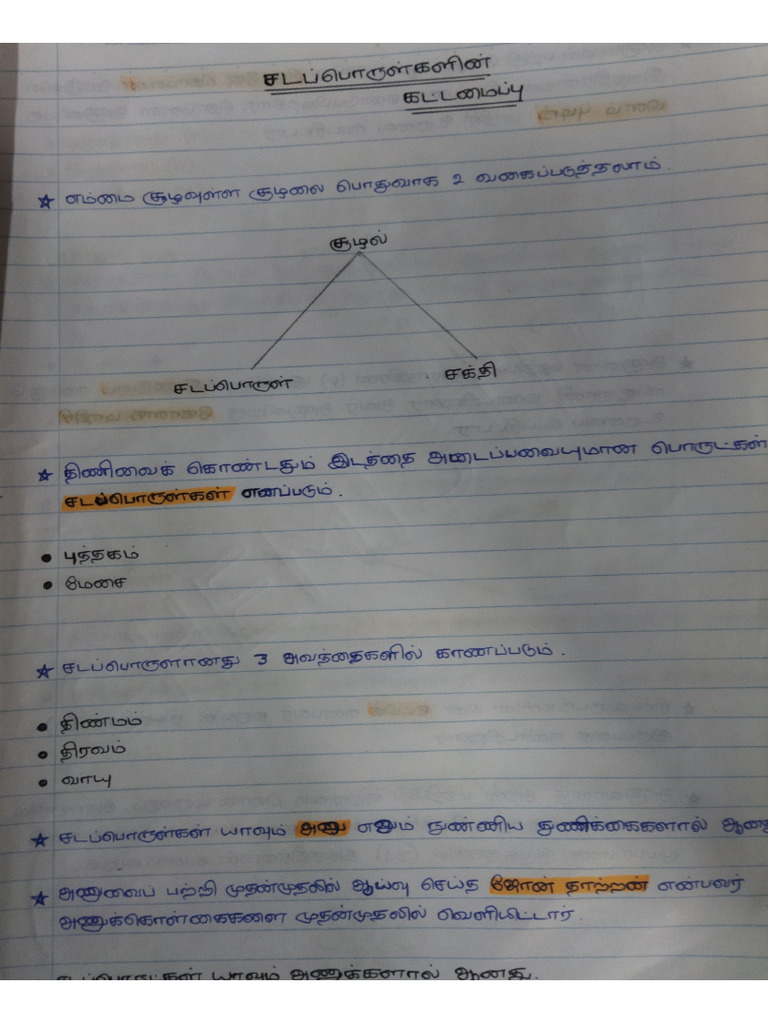 சடப்பொருள்களின்
கட்டமைப்பு
★ எம்மை சூழவுள்ள சூழலை பொதுவாக 2 வகைப்படுத்தலாம்.
சூழல்
சடப்பொருள் சக்தி
★ திணிவைக் கொண்டதும் இடத்தை அடைப்பவையுமான பொருட்கள்
சடப்பொருள்கள் எனப்படும்.
• புத்தகம்
• மேசை
★ சடப்பொருளானது 3 அவத்தைகளில் காணப்படும்.
• திண்மம்
• திரவம்
• வாயு
★ சடப்பொருள்கள் யாவும் அணு எனும் நுண்ணிய துணிக்கைகளால்
★ அணுவைப் பற்றி முதன்முதலில் ஆய்வு செய்த ஜோன் தாற்றன் என்பவர்
அணுக்கொள்கைகளை முதன்முதலில் வெளியிட்டார்.
யாவும் அணுக்களால் ஆனது.